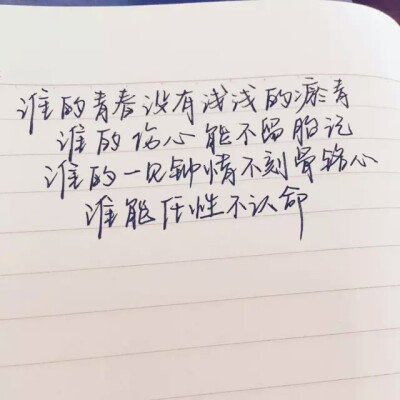 谁的青春没有浅浅的瘀青
谁的伤心能不留胎记
谁的一见钟情不刻骨铭心
谁能任性不认命